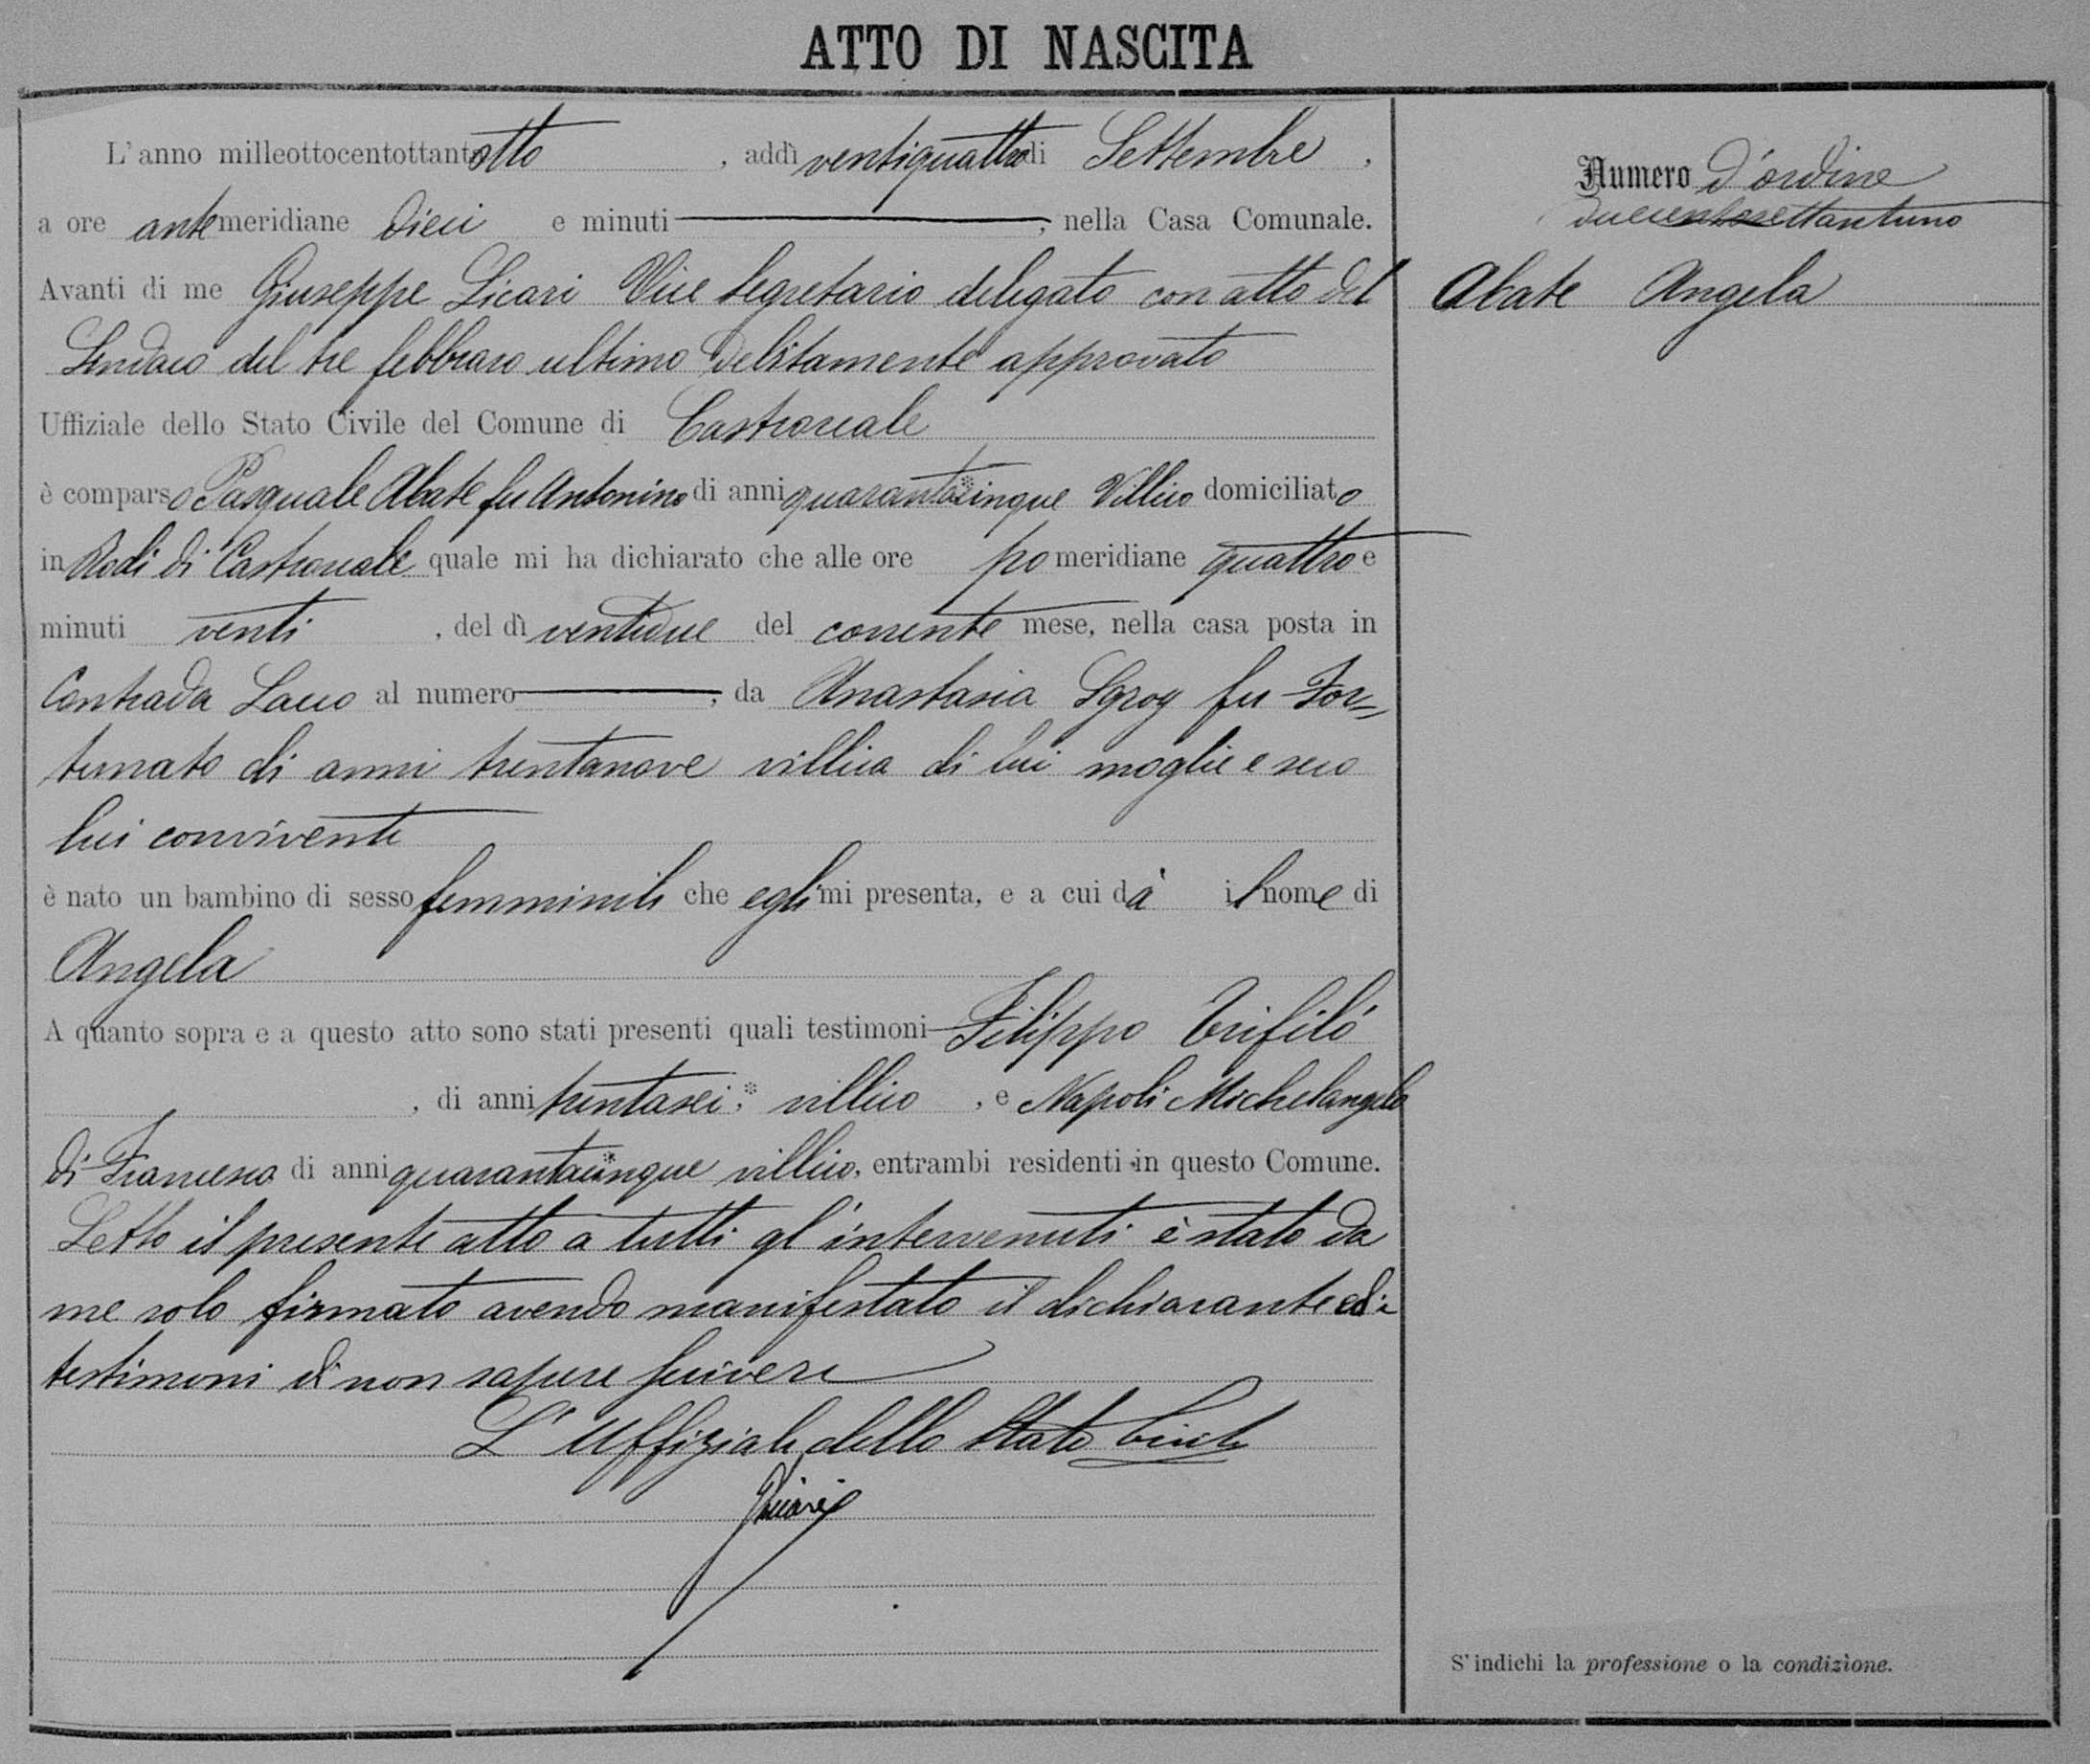 ATTO DI NASCITA
L'anno milleottocentottantaotto, addì ventiquattro di Settembre,
a ore antemeridiane dieci e minuti ———, nella Casa Comunale.
Avanti di me Giuseppe Licari Vice Segretario delegato con atto del
Sindaco del tre febbraro ultimo debitamente approvato
Uffiziale dello Stato Civile del Comune di Castroreale
è comparso Pasquale Abate fu Antonino di anni quarantacinque Villico domiciliato
in Rodi di Castroreale quale mi ha dichiarato che alle ore pomeridiane quattro e
minuti venti, del dì ventidue del corrente mese, nella casa posta in
Contrada Lacco al numero ———, da Anastasia Sgroy fu For=
tunato di anni trentanove villica di lui moglie e seco
lui convivente
è nato un bambino di sesso femminile che egli mi presenta, e a cui dà il nome di
Angela
A quanto sopra e a questo atto sono stati presenti quali testimoni Filippo Trifilò
, di anni trentasei, villico, e Napoli Michelangelo
di Francesco di anni quarantacinque villico, entrambi residenti in questo Comune.
Letto il presente atto a tutti gl'intervenuti è stato da
me solo firmato avendo manifestato il dichiarante ed i
testimoni di non sapere scrivere
L'Uffiziale dello Stato Civile
GLicari
Numero d'ordine
duecentosettantuno
Abate Angela
S'indichi la professione o la condizione.